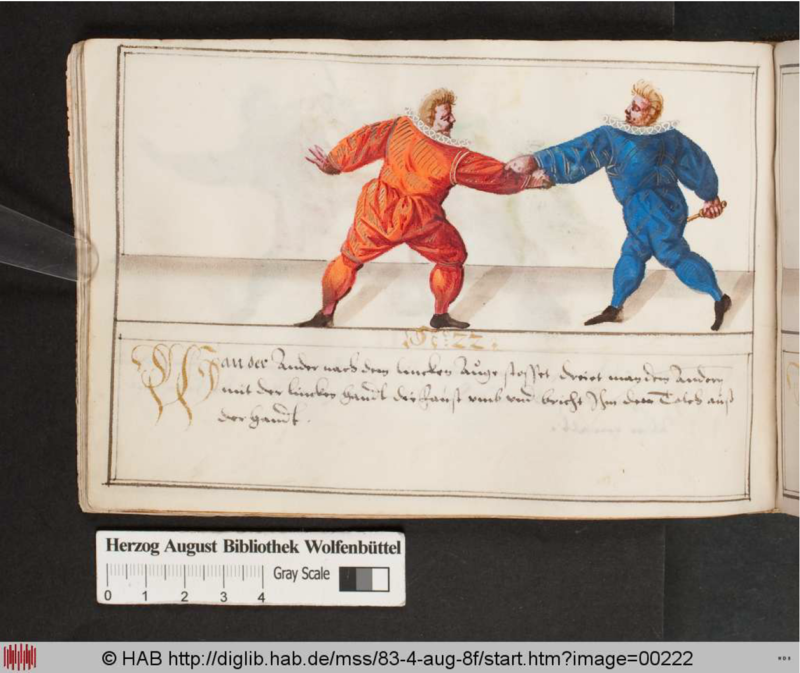 22.
Wan der Ander nach dem lincken Auge stosset dreiet man dem Andern
mit der lincken handt die faust umb und bricht Ihm den Tolch auß
der handt.
Herzog August Bibliothek Wolfenbüttel
Gray Scale
0 1 2 3 4
© HAB http://diglib.hab.de/mss/83-4-aug-8f/start.htm?image=00222